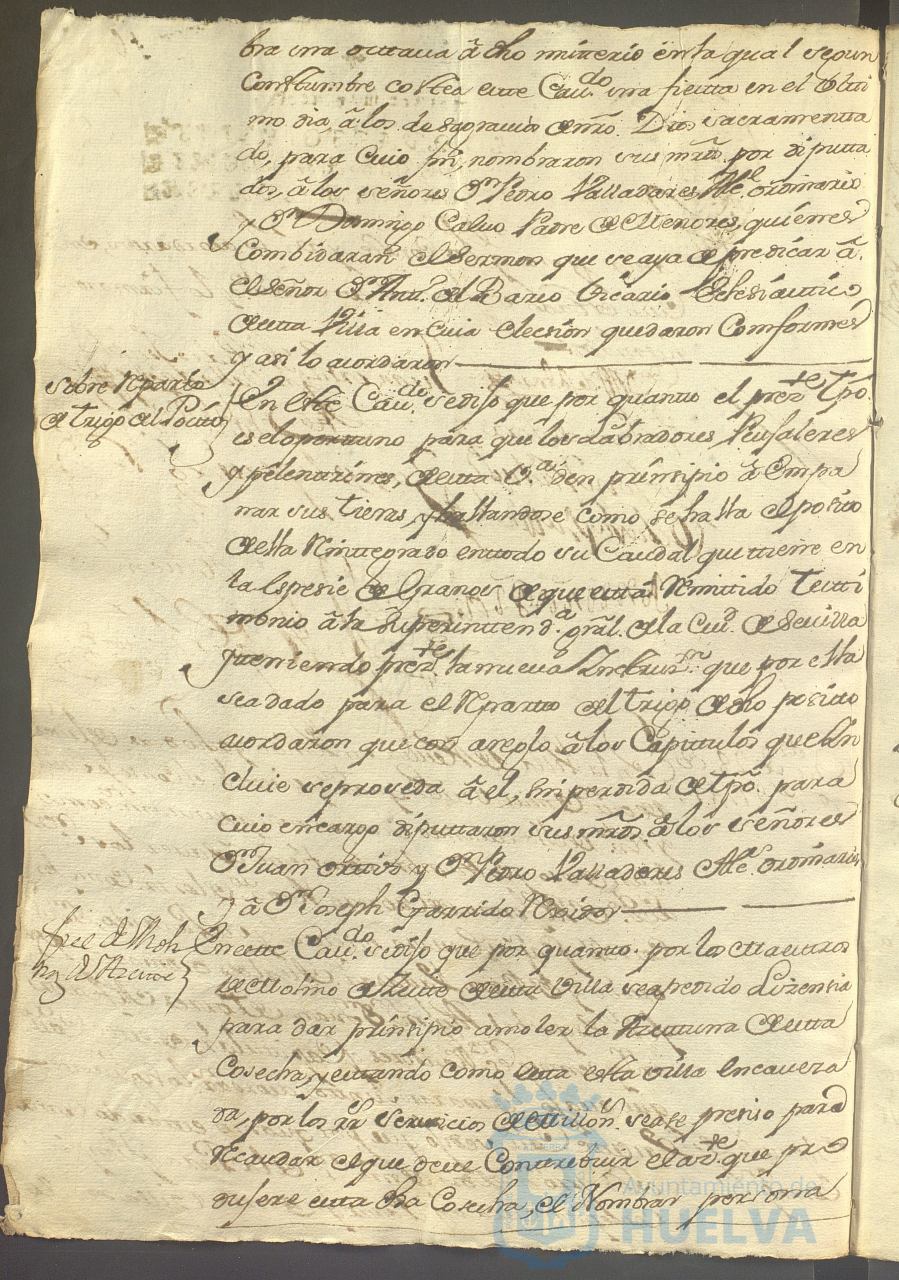 bra una octtaua â dho misterio en la qual segun
Consttumbre costea este Cauᵈᵒ una fiestta en el Vlti
mo dia, â los desagrauios de nro. Dios sacramentta
do, para cuio fin, nombraron sus mrds. por diputta
dos, â los señores Dⁿ Pedro Valladares Alᵉ ordinario
y Dⁿ Domingo Caluo Padre de Menores, quienes
Combidaran el Sermon que se aya de predicar â
el Señor Dⁿ Antt. del Barco Vicario Eclesiásttico
de estta Villa en cuia elecsion quedaron Comformes
y asi lo acordaron
Sobre Repartto
de trigo del Positto
En este Cauᵈᵒ se dijo que por quantto el prezᵗᵉ tpô.
es el oporttuno para que los Labradores Peujaleros
y pelenttrines, de estta Vᵃ den prinsipio â Empa
nar sus tieras, y hallandose como se halla el positto
de ella Reinttegrado en ttodo su Caudal que ttiene en
la Espesie de Granos de que estta Remitido Testti
monio â la Superinttendᵃ gral. de la Ciud. de Seuilla
y ttenienndo prezᵗᵉ la nueua Insttruzⁿ que por ella
sea dado para el Repartto del trigo de dho positto
acordaron que con areglo â los Capittulos que in
cluie se proseda â el, sin perdida de tpô. para
cuio encargo diputtaron sus mrds â los señores
Dⁿ Juan y Dⁿ Pedro Valladares Alᵉ ordinarios
y â Dⁿ Joseph Garrido Rexidor
fiel de Moli
nos de Azeite
En estte Cauᵈᵒ se dijo que por quantto por los Maesttros
de Molino de Azeitte de estta Villa sea pedido Lizensia
para dar prinsipio a moler la Azeittuna de estta
Cosecha, y esttando como estta estta villa Encaueza
da, por los rs seruicios de Millonˢ sease presiso para
Recaudar el que deue Conttribuir el azᵗᵉ que pro
dusere estta dha Cosecha, el Nombrar persona
Ayuntamiento de
HUELVA